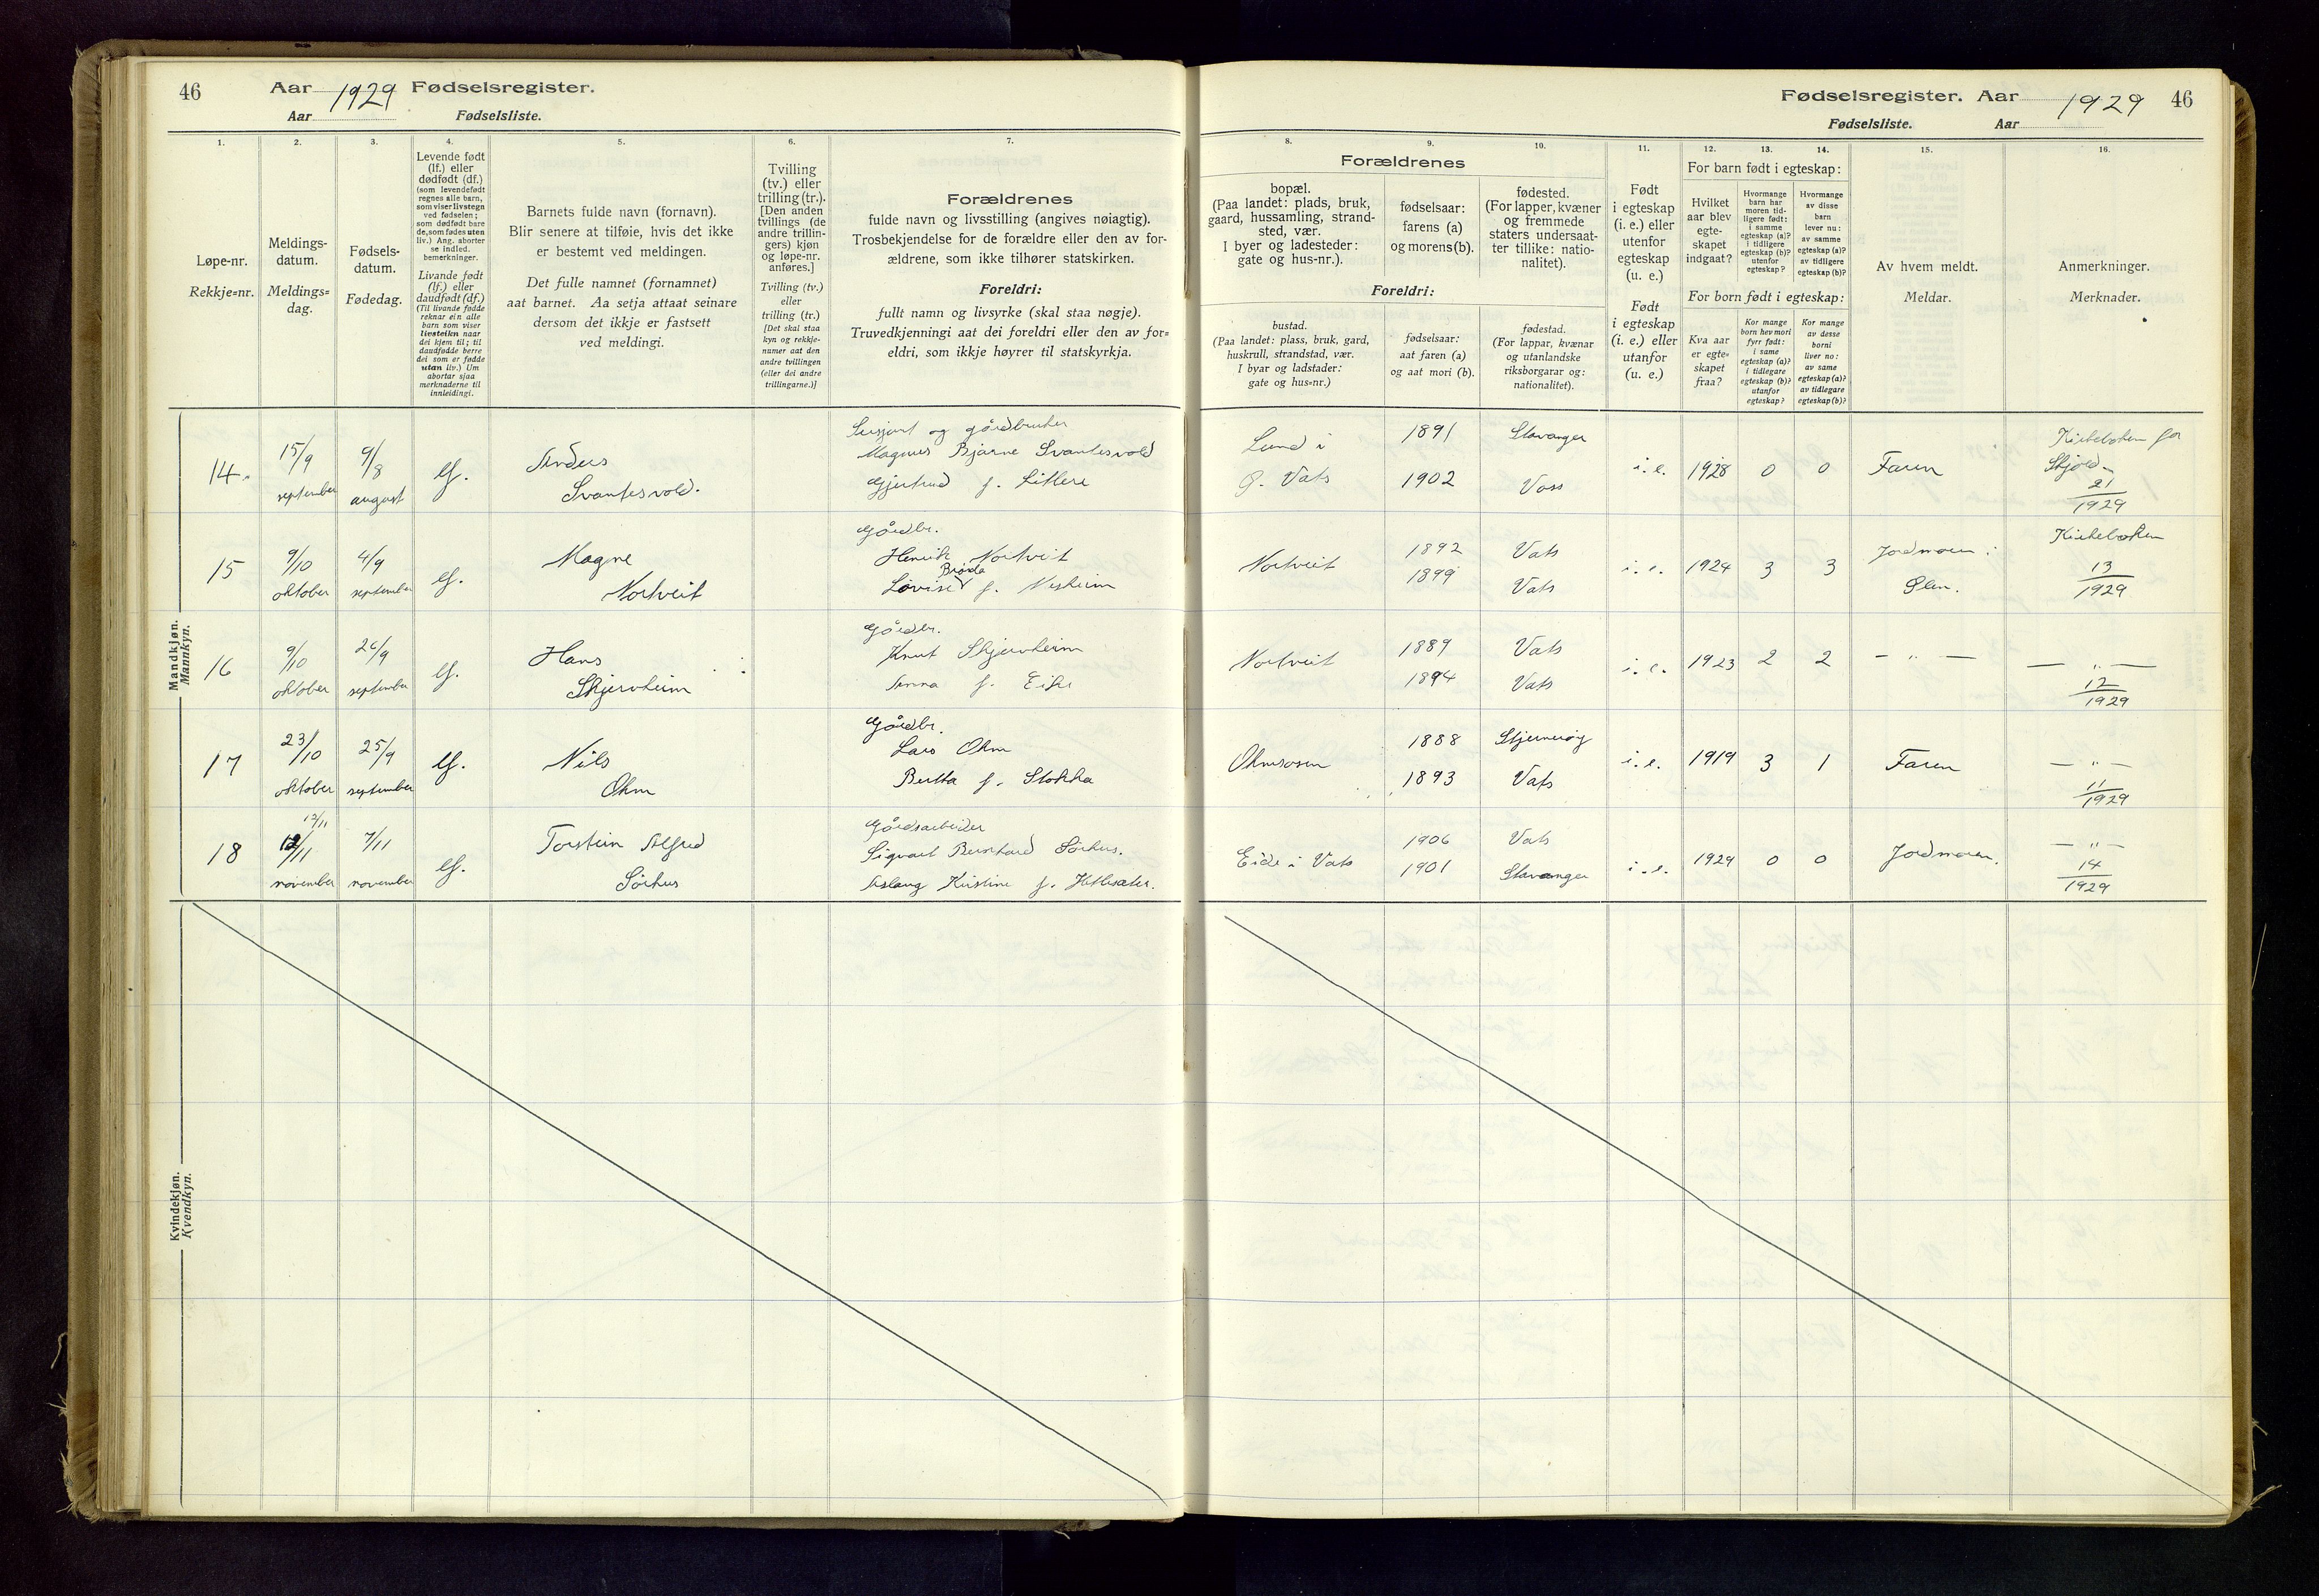 46
Aar 1929 Fødselsregister.
Aar Fødselsliste.
Fødselsregister. Aar 1929
46
Fødselsliste. Aar
1.
Løpe-nr.
Rekkje=nr.
2.
Meldings-
datum.
Meldings=
dag.
3.
Fødsels-
datum.
Fødedag.
4.
Levende født
(lf.) eller
dødfødt (df.)
(som levendefødt
regnes alle barn,
som viser livstegn
ved fødselen;
som dødfødt bare
de, som fødes uten
liv.) Ang. aborter
se indled.
bemerkninger.
Livande født
(lf.) eller
daudfødt (df.)
(Til livande fødde
reknar ein alle
barn som viser
livsteikn naar
dei kjem til; til
daudfødde berre
dei som er fødde
utan liv.) Um
abortar sjaa
merknaderne til
innleidingi.
5.
Barnets fulde navn (fornavn).
Blir senere at tilføie, hvis det ikke
er bestemt ved meldingen.
Det fulle namnet (fornamnet)
aat barnet. Aa setja attaat seinare
dersom det ikkje er fastsett
ved meldingi.
6.
Tvilling
(tv.) eller
trilling (tr.).
[Den anden
tvillings (de
andre trillin-
gers) kjøn
og løpe-nr.
anføres.]
Tvilling (tv.)
eller
trilling (tr.)
[Det skal staa
kyn og rekkje-
numer aat den
andre tvillingen
(eller dei andre
trillingarne.)]
7.
Forældrenes
fulde navn og livsstilling (angives nøiagtig).
Trosbekjendelse for de forældre eller den av for-
ældrene, som ikke tilhører statskirken.
Foreldri:
fullt namn og livsyrke (skal staa nøgje).
Truvedkjenningi aat dei foreldri eller den av for=
eldri, som ikkje høyrer til statskyrkja.
8.
Forældrenes
bopæl.
(Paa landet: plads, bruk,
gaard, hussamling, strand-
sted, vær.
I byer og ladesteder:
gate og hus-nr.).
Foreldri:
bustad.
(Paa landet: plass, bruk, gard,
huskrull, strandstad, vær.
I byar og ladstader:
gate og hus=nr.)
9.
fødselsaar:
farens (a)
og morens(b).
fødselsaar:
aat faren (a)
og aat mori (b).
10.
fødested.
(For lapper, kvæner
og fremmede
staters undersaat-
ter tillike: natio-
nalitet).
fødestad.
(For lappar, kvænar
og utanlandske
riksborgarar og:
nationalitet).
11.
Født
i egteskap
(i. e.) eller
utenfor
egteskap
(u. e.)
Født
i egteskap
(i. e.) eller
utanfor
(u. e.)
12. 13. 14.
For barn født i egteskap:
Hvilket
aar blev
egte-
skapet
indgaat?
Hvormange
barn har
moren tid-
ligere født:
i samme
egteskap (a)?
i tidligere
egteskap (b)?
utenfor
egteskap?
Hvormange
av disse
barn
lever nu:
av samme
egteskap (a)?
av tidligere
egteskap (b)?
For born født i egteskap:
Kva aar
er egte=
skapet
fraa?
Kor mange
born hev mori
fyrr født:
i same
egteskap (a)?
i tidlegare
egteskap (b)?
utanfor
egteskap?
Kor mange
av desse
borni
liver no:
av same
egteskap (a)?
av tidlegare
egteskap (b)?
15.
Av hvem meldt.
Meldar.
16.
Anmerkninger.
Merknader.
Mandkjøn.
Mannkyn.
14. 15/9 september 9/8 august lf.
Anders
Svantesvold.
gårdbruker
Magnus Bjarne Svantesvold
Gjertrud f. Litlere
Lund i
Ø. Vats
1891 Stavanger
1902 Voss
i. e. 1928 0 0 Faren
Kirkeboken for
Skjold
21
1929
15 9/10 oktober 4/9 september lf.
Magne
Nortveit
Gårdbr.
Henrik Nortveit
Brøda
Lovise f. Nesheim
Nortveit
1892 Vats
1899 Vats
i. e. 1924 3 3
Jordmoren i
Ølen.
Kirkeboken
13
1929
16 9/10 oktober 26/9 september lf.
Hans
Skjervheim
Gårdbr.
Knut Skjervheim
Anna f. Eike
Nortveit
1889 Vats
1894 Vats
i. e. 1923 2 2 — " —
— " —
12
1929
17 23/10 oktober 25/9 september lf.
Nils
Ohm
Gårdbr.
Lars Ohm
Berta f. Stokka
Ohmsosen
1888 Stjernerøy
1893 Vats
i. e. 1919 3 1 Faren
— " —
11
1929
18 12/11 12/11 november 7/11 november lf.
Torstein Alfred
Sørhus
Gårdsarbeider
Sigvart Bernhard Sørhus.
Aslaug Kristine f. Hetlesæter.
Eide i Vats
1906 Vats
1901 Stavanger
i. e. 1929 0 0 Jordmoren.
— " —
14
1929
Kvindekjøn.
Kvendkyn.